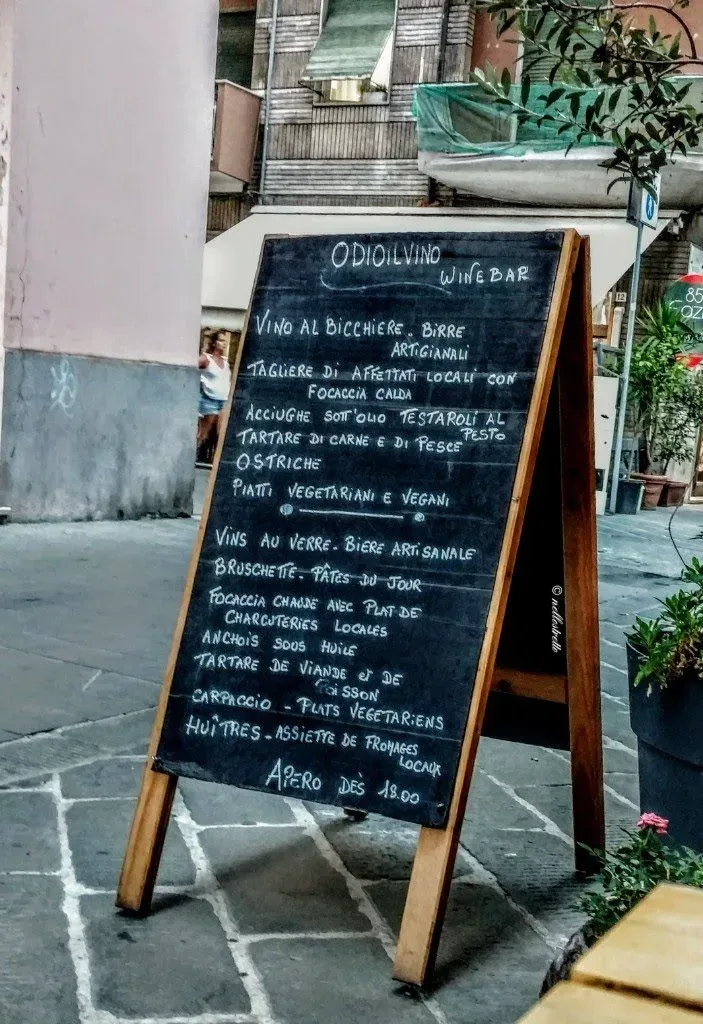 ODIOILVINO
WINEBAR
VINO AL BICCHIERE - BIRRE
ARTIGIANALI
TAGLIERE DI AFFETTATI LOCALI CON
FOCACCIA CALDA
ACCIUGHE SOTT'OLIO TESTAROLI AL
PESTO
TARTARE DI CARNE E DI PESCE
OSTRICHE
PIATTI VEGETARIANI E VEGANI
VINS AU VERRE - BIERE ARTISANALE
BRUSCHETTE - PÂTES DU JOUR
FOCACCIA CHAUDE AVEC PLAT DE
CHARCUTERIES LOCALES
ANCHOIS SOUS HUILE
TARTARE DE VIANDE ET DE
POISSON
CARPACCIO - PLATS VEGETARIENS
HUÎTRES - ASSIETTE DE FROMAGES
LOCAUX
APERO DÈS 18.00
© nellostrello
12
85